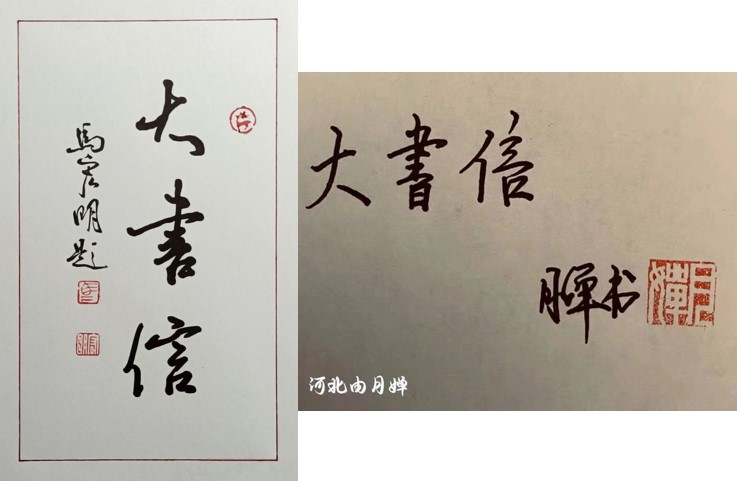 大書信
馬宏明題
大書信
月婵书
月婵
河北由月婵